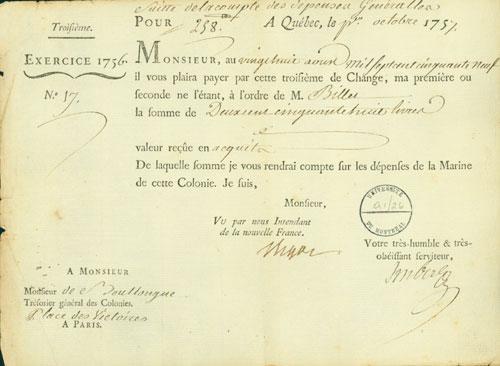 Suitte de la compte des depenses Générallea
Troisième.
POUR 258. A Québec, le pr. octobre 1757
EXERCICE 1756.
MONSIEUR, au vingt huit aoust mil sept cent cinquante neuf
il vous plaira payer par cette troisième de Change, ma première ou
No. 17.
seconde ne l'étant, à l'ordre de M. Billet
la somme de Deux cent cinquante huit livres
valeur reçue en acquits
De laquelle somme je vous rendrai compte sur les dépenses de la Marine
de cette Colonie. Je suis,
Monsieur,
VU par nous Intendant
de la nouvelle France.
UNIVERSITÉ
DE MONTREAL
Votre très-humble & très-
obéissant serviteur,
Bigot
Imbert
A MONSIEUR
Monsieur de Boullongne
Trésorier général des Colonies.
Place des Victoires
A PARIS.